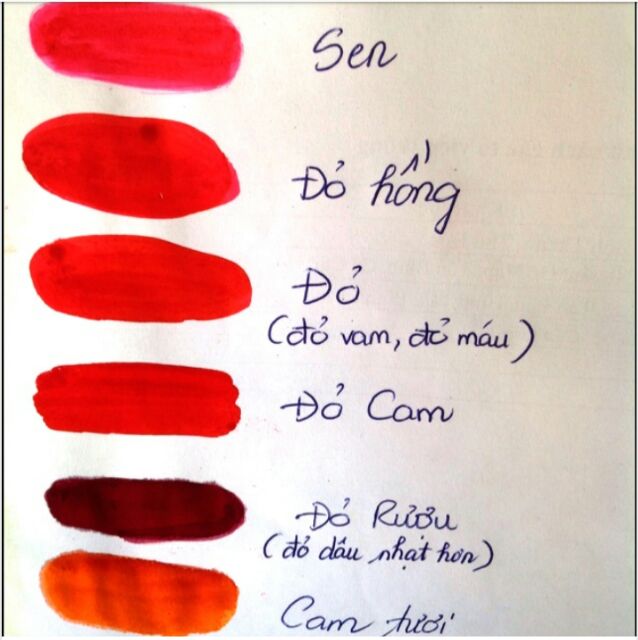 Sen
Đỏ hống
Đỏ
(đỏ vam, đỏ máu)
Đỏ Cam
Đỏ Rượu
(đỏ dâu nhạt hơn)
Cam tươi